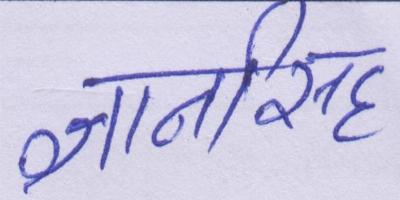 ज्ञानसिंह